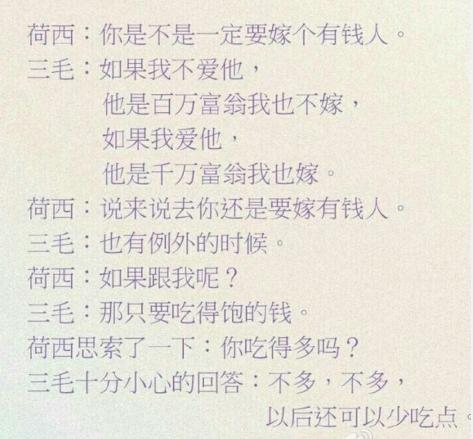 荷西：你是不是一定要嫁个有钱人。
三毛：如果我不爱他，
他是百万富翁我也不嫁，
如果我爱他，
他是千万富翁我也嫁。
荷西：说来说去你还是要嫁有钱人。
三毛：也有例外的时候。
荷西：如果跟我呢？
三毛：那只要吃得饱的钱。
荷西思索了一下：你吃得多吗？
三毛十分小心的回答：不多，不多，
以后还可以少吃点。